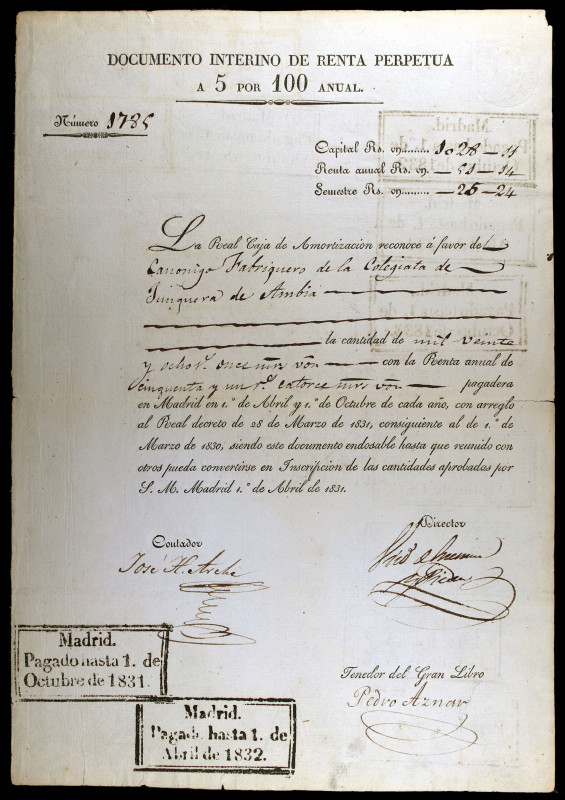 DOCUMENTO INTERINO DE RENTA PERPETUA
A 5 POR 100 ANUAL.
Número 1785
Capital Rs. vn........ 1028-11
Renta anual Rs. vn. 51-14
Semestre Rs. vn........ 25-24
La Real Caja de Amortizacion reconoce á favor del
Canonigo Fabriquero de la Colegiata de
Junquera de Ambia
la cantidad de mil veinte
y ocho rs. once mrs von con la Renta anual de
cinquenta y un rs. catorce mrs von pagadera
en Madrid en 1.º de Abril y 1.º de Octubre de cada año, con arreglo
al Real decreto de 28 de Marzo de 1831, consiguiente al de 1.º de
Marzo de 1830, siendo este documento endosable hasta que reunido con
otros pueda convertirse en Inscripcion de las cantidades aprobadas por
S. M. Madrid 1.º de Abril de 1831.
Director
Contador
José H. Arche
Madrid.
Pagado hasta 1. de
Octubre de 1831.
Tenedor del Gran Libro
Pedro Aznar
Madrid.
Pagado hasta 1. de
Abril de 1832.